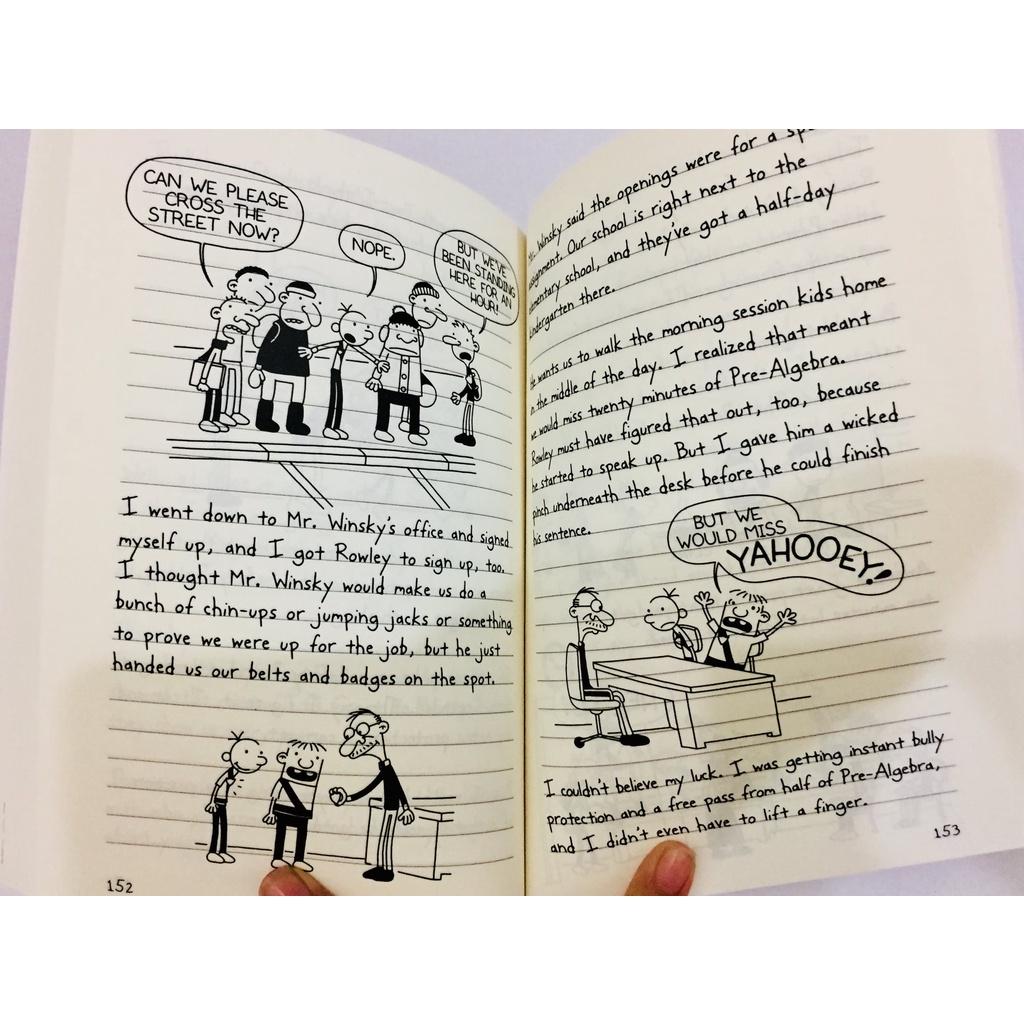 CAN WE PLEASE
CROSS THE
STREET NOW?
NOPE.
BUT WE'VE
BEEN STANDING
HERE FOR AN
HOUR!
I went down to Mr. Winsky's office and signed
myself up, and I got Rowley to sign up, too.
I thought Mr. Winsky would make us do a
bunch of chin-ups or jumping jacks or something
to prove we were up for the job, but he just
handed us our belts and badges on the spot.
152
Mr. Winsky said the openings were for a
assignment. Our school is right next to the
elementary school, and they've got a half-day
kindergarten there.
He wants us to walk the morning session kids home
in the middle of the day. I realized that meant
we would miss twenty minutes of Pre-Algebra.
Rowley must have figured that out, too, because
he started to speak up. But I gave him a wicked
pinch underneath the desk before he could finish
his sentence.
BUT WE
WOULD MISS
YAHOOEY!
I couldn't believe my luck. I was getting instant bully
protection and a free pass from half of Pre-Algebra,
and I didn't even have to lift a finger.
153